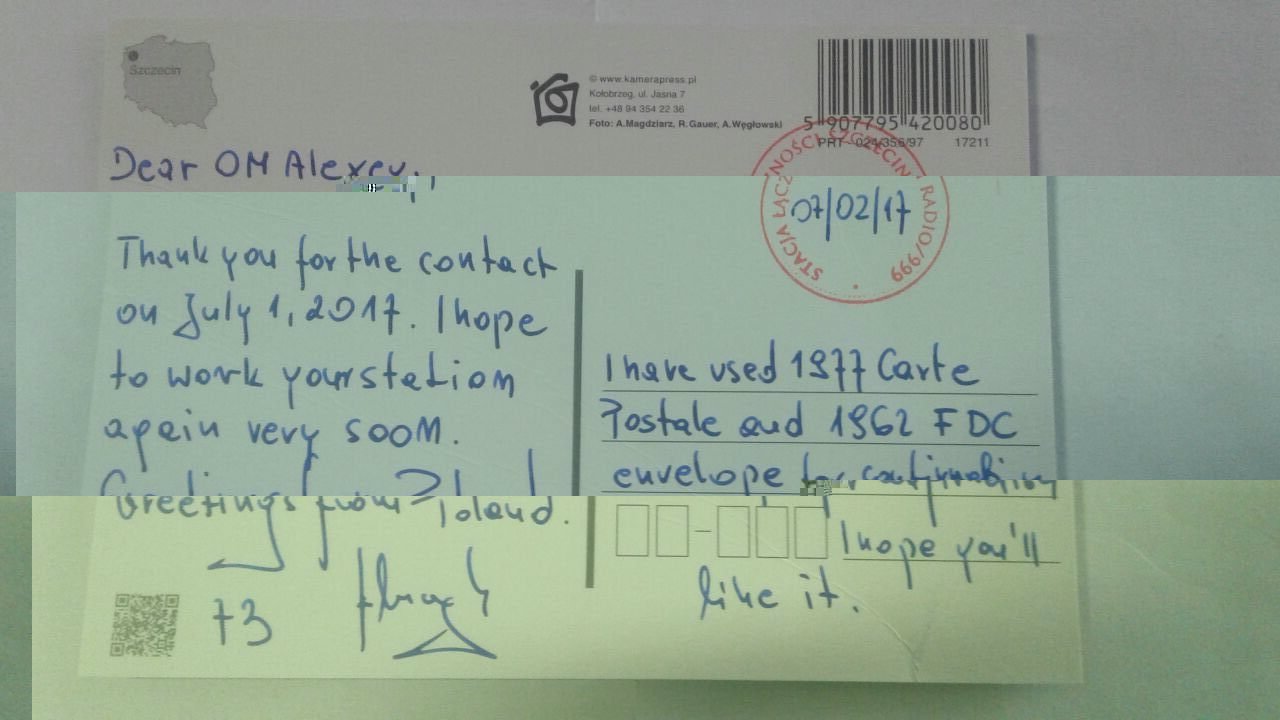 Szczecin
© www.kamerapress.pl
Kołobrzeg, ul. Jasna 7
tel. +48 94 354 22 36
Foto: A.Magdziarz, R.Gauer, A.Węgłowski
5 907795 420080
PRT 024/356/97 17211
STACJA ŁĄCZNOŚCI SZCZECIN RADIO/999
07/02/17
Dear OM Alexey,
Thank you for the contact
on July 1, 2017. I hope
to work your station
again very soon.
Greetings from Poland.
73
I have used 1977 Carte
Postale and 1962 FDC
envelope for confirmation
I hope you'll
like it.